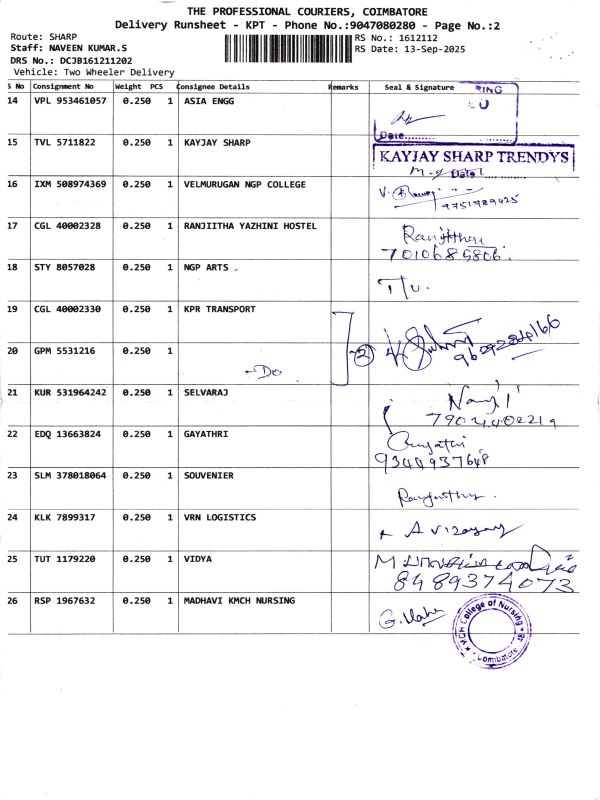 THE PROFESSIONAL COURIERS, COIMBATORE
Delivery Runsheet - KPT - Phone No.:9047080280 - Page No.:2
Route: SHARP
RS No.: 1612112
Staff: NAVEEN KUMAR.S
RS Date: 13-Sep-2025
DRS No.: DCJB161211202
Vehicle: Two Wheeler Delivery
S No Consignment No Weight PCS Consignee Details Remarks Seal & Signature
14 VPL 953461057 0.250 1 ASIA ENGG
Date
15 TVL 5711822 0.250 1 KAYJAY SHARP
KAYJAY SHARP TRENDYS
Date
16 IXM 508974369 0.250 1 VELMURUGAN NGP COLLEGE
9751989425
17 CGL 40002328 0.250 1 RANJIITHA YAZHINI HOSTEL
7010685806.
18 STY 8057028 0.250 1 NGP ARTS
19 CGL 40002330 0.250 1 KPR TRANSPORT
20 GPM 5531216 0.250 1
-Do
2
21 KUR 531964242 0.250 1 SELVARAJ
22 EDQ 13663824 0.250 1 GAYATHRI
Gayathri
9340937648
23 SLM 378018064 0.250 1 SOUVENIER
24 KLK 7899317 0.250 1 VRN LOGISTICS
25 TUT 1179220 0.250 1 VIDYA
8489374073
26 RSP 1967632 0.250 1 MADHAVI KMCH NURSING
KMCH College of Nursing
Coimbatore